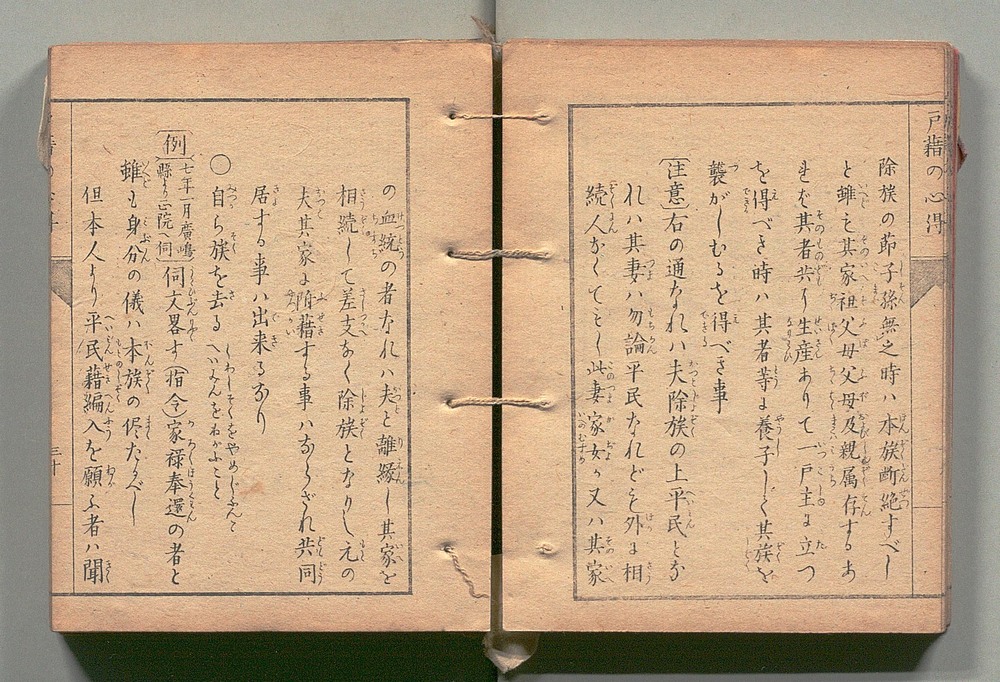 戸籍の心得
除族の節子孫無之時ハ本族断絶すべし
と雖も其家祖父母父母及親属存するあ
れば其者共々生産ありて一戸主に立つ
を得べき時ハ其者等に養子して其族を
襲がしむるを得べき事
(注意)右の通なれハ夫除族の上平民とな
れハ其妻ハ勿論平民なれども外に相
続人なくてもし此妻家女か又ハ其家
の血統の者なれハ夫と離縁し其家を
相続して差支なく除族となりし元の
夫其家に附籍する事ハならざれ共同
居する事ハ出来るなり
○自ら族を去る
(例)七年一月廣嶋縣より正院へ伺 伺文畧す(指令)家禄奉還の者と
雖も身分の儀ハ本族の侭たるべし
但本人より平民籍編入を願ふ者ハ聞
三十